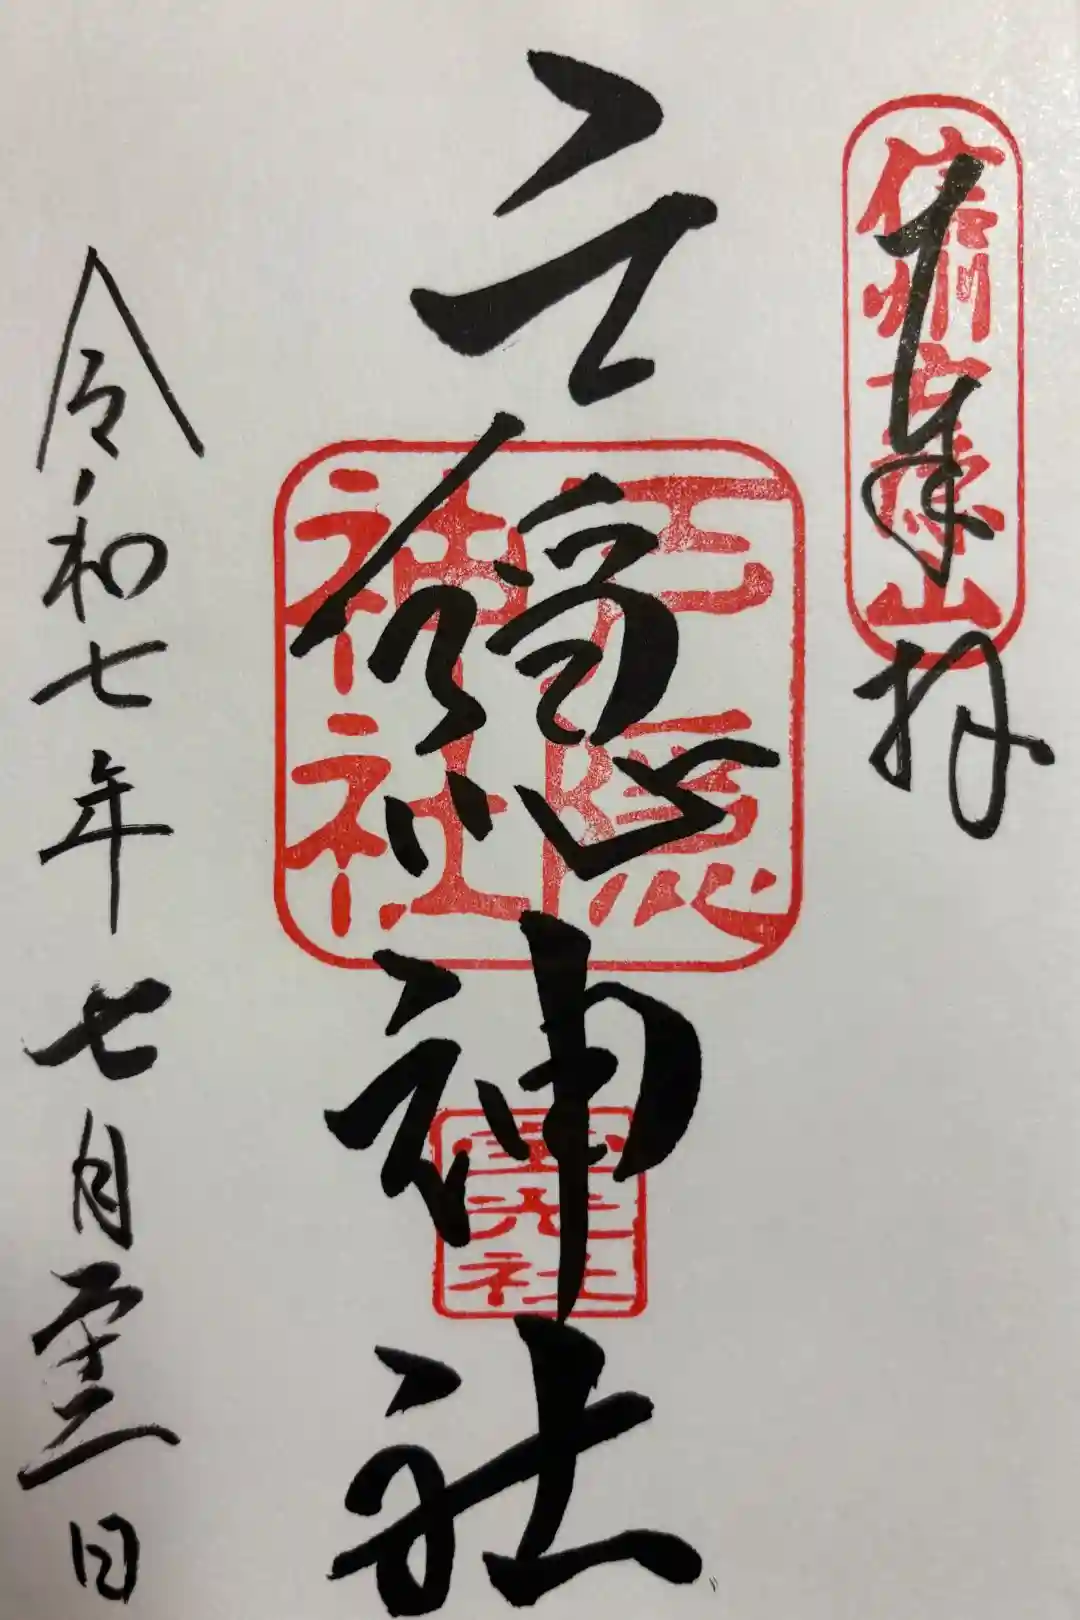 奉拝
信州戸隠山
戸隠神社
戸隠
神社
宝光社
令和七年七月二十三日